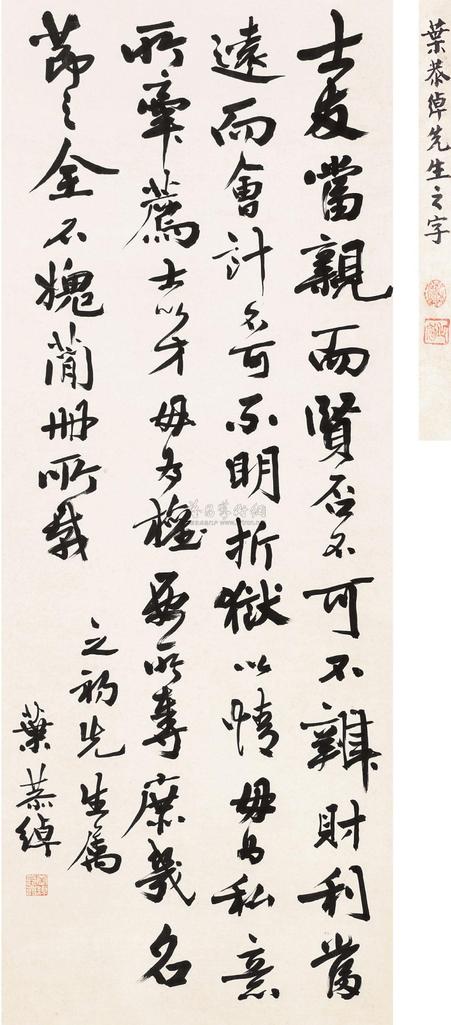 葉恭綽先生之字
士友當親而賢否不可不辨財利當
遠而會計不可不明折獄以情毋為私意
所牽薦士以才毋為權要所奪庶幾名
節之全不愧簡冊所載
之初先生屬
葉恭綽